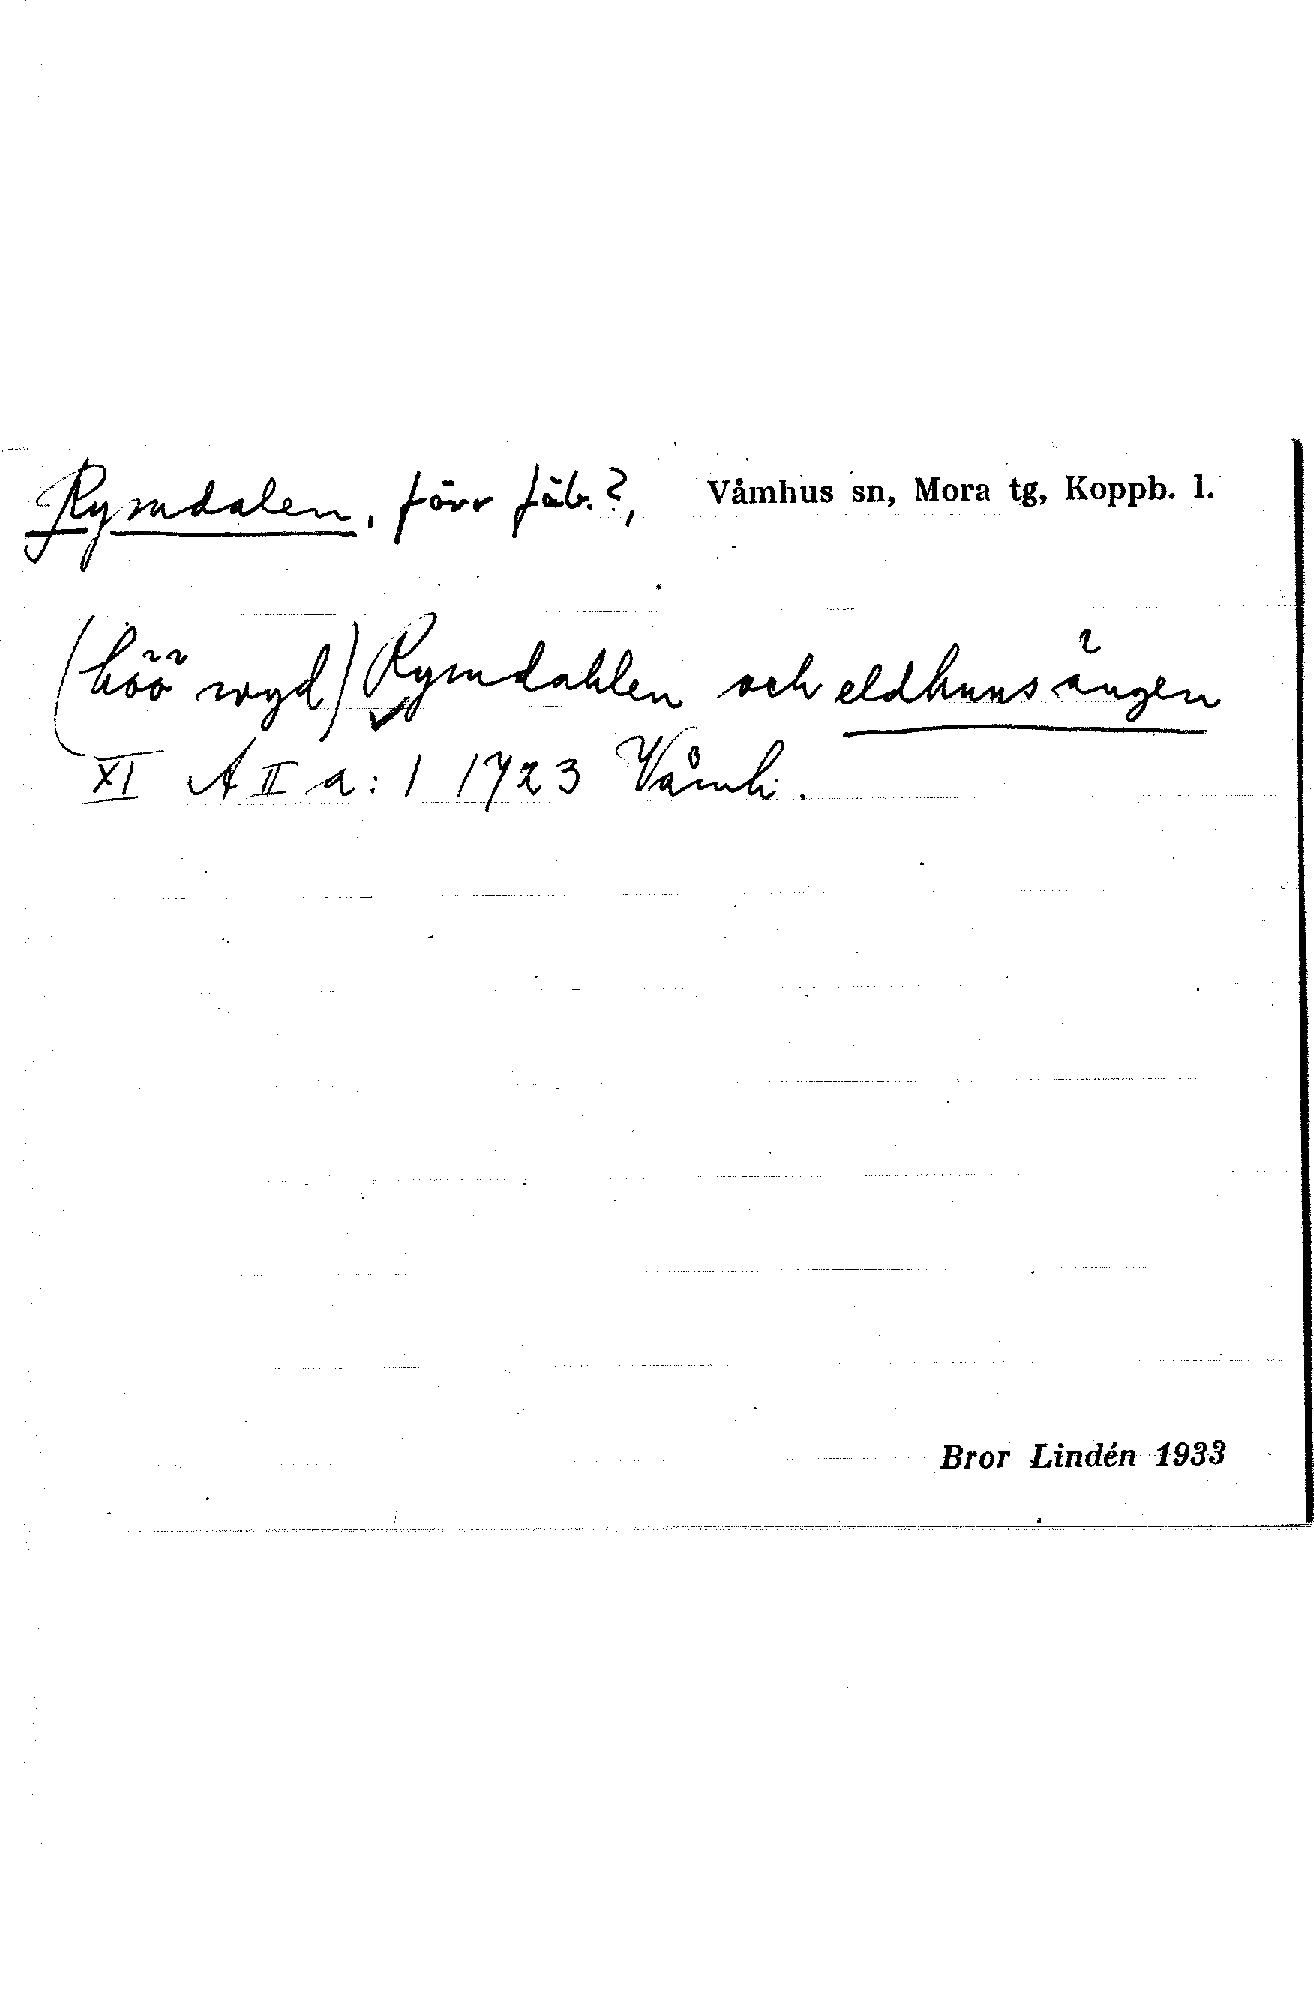 Rymdalen, förr fäb.?, Våmhus sn, Mora tg, Koppb. l.
(höö wyd) Rymdahlen och eldhuusängen
XI A II a: 1 1723 Våmh.
Bror Lindén 1933